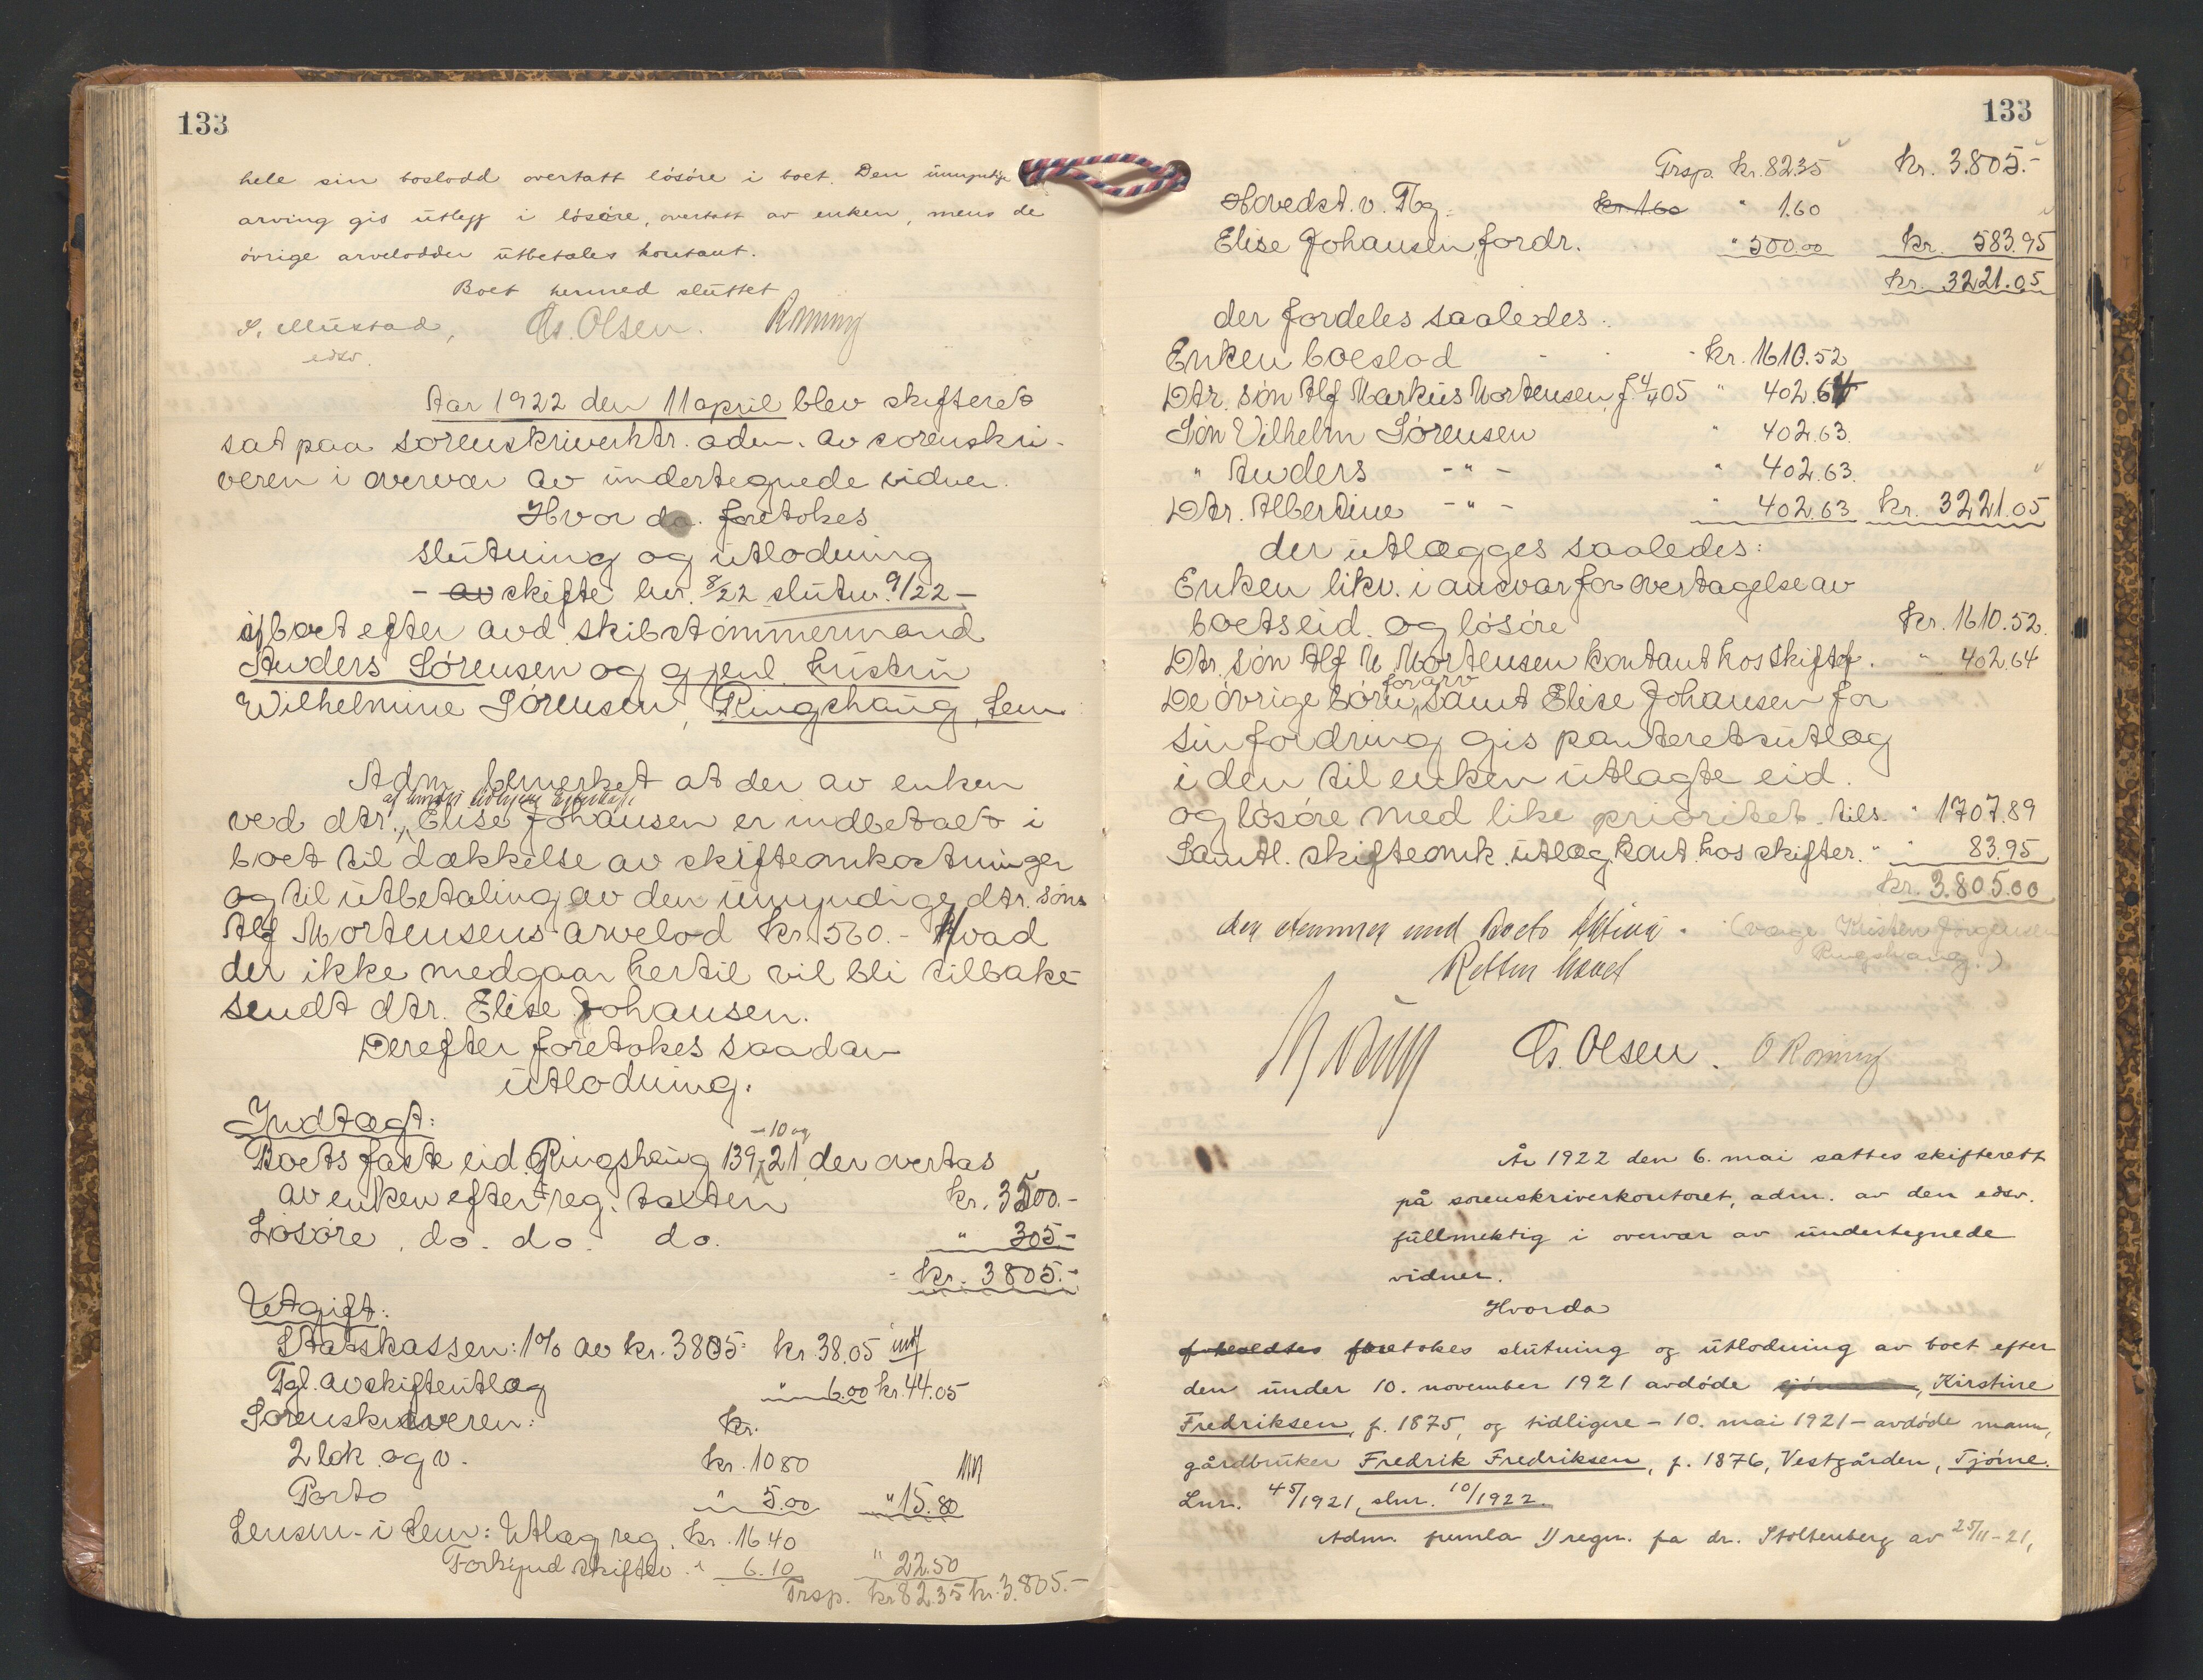 133
hele sin boslodd overtatt løsøre i boet. Den umyndige
arving gis utlegg i løsøre, overtatt av enken, mens de
øvrige arvelodder utbetales kontant.
Boet hermed sluttet
S. Mustad, Chs. Olsen. Romny
edsv.
Aar 1922 den 11 april blev skifteret
sat paa sorenskriverktr. adm. av sorenskri-
veren i overvær av undertegnede vidner.
Hvor da foretokes
slutning og utlodning
- av skifte lnr. 8/22 slutnr. 9/22 -
i boet efter avd. skibstømmermand
Anders Sørensen og gjenl. hustru
Wilhelmine Sørensen, Ringshaug, Sem
Adm. bemerket at der av enken
ved dtr. Elise Johansen er indbetalt i
boet til dækkelse av skifteomkostninger
og til utbetaling av den umyndige dtr. søns
Alf Mortensens arvelod kr. 500.- Hvad
der ikke medgaar hertil vil bli tilbake-
sendt dtr. Elise Johansen.
Derefter foretokes saadan
utlodning.
Indtægt:
- 10 og
Boets faste eid. Ringshaug 139, 21, der overtas
av enken efter reg. taxten kr. 3500.-
Løsøre, do. do. do. " 305.-
kr. 3805.-
Utgift:
Statskassen: 1% av kr. 3805.- kr. 38.05
Tgl. av skifteutlæg " 6.00 kr. 44.05
Sorenskriveren: kr.
2 lok. og v. kr. 10.80
Porto " 5.00 " 15.80
Lensm. i Sem: Utlæg reg. kr. 16.40
Forkynd skiftev. " 6.10 " 22.50
Trsp. kr. 82.35 kr. 3.805.-
133
Trsp. kr. 82.35 kr. 3.805.-
Hovedst. v. Tbg. kr. 1.60 " 1.60
Elise Johansen, fordr. " 500.00 kr. 583.95
kr. 3221.05
der fordeles saaledes:
Enken boeslod kr. 1610.52
Dtr. søn Alf Markus Mortensen, f. 4/4 05 " 402.64
Søn Vilhelm Sørensen " 402.63.
" Anders - " - " 402.63.
Dtr. Albertine - " - " 402.63 kr. 3221.05
der utlægges saaledes:
Enken likv. i ansvar for overtagelse av
boets eid. og løsøre kr. 1610.52.
Dtr. søn Alf M Mortensen kontant hos skiftef. " 402.64
for arv
De øvrige børn, samt Elise Johansen for
sin fordring gis panteretsutlæg
i den til enken utlagte eid.
og løsøre med like prioritet, tils. " 1707.89
Samtl. skifteomk. utlæg kont. hos skifter. " 83.95
kr. 3.805.00
der stemmer med Boets Aktiva. (værge Kristen Jørgensen
Ringshaug.)
Retten hævet
Chs. Olsen. O Romny
År 1922 den 6. mai sattes skifterett
på sorenskriverkontoret, adm. av den edsv.
fullmektig i overvær av undertegnede
vidner.
Hvorda
foretokes slutning og utlodning av boet efter
den under 10. november 1921 avdøde Kirstine
Fredriksen, f. 1875, og tidligere - 10. mai 1921 - avdøde mann,
gårdbruker Fredrik Fredriksen, f. 1876, Vestgården, Tjøme.
Lnr. 45/1921, slnr. 10/1922.
Adm. fremla 1) regn. fra dr. Stoltenberg av 25/11-21,